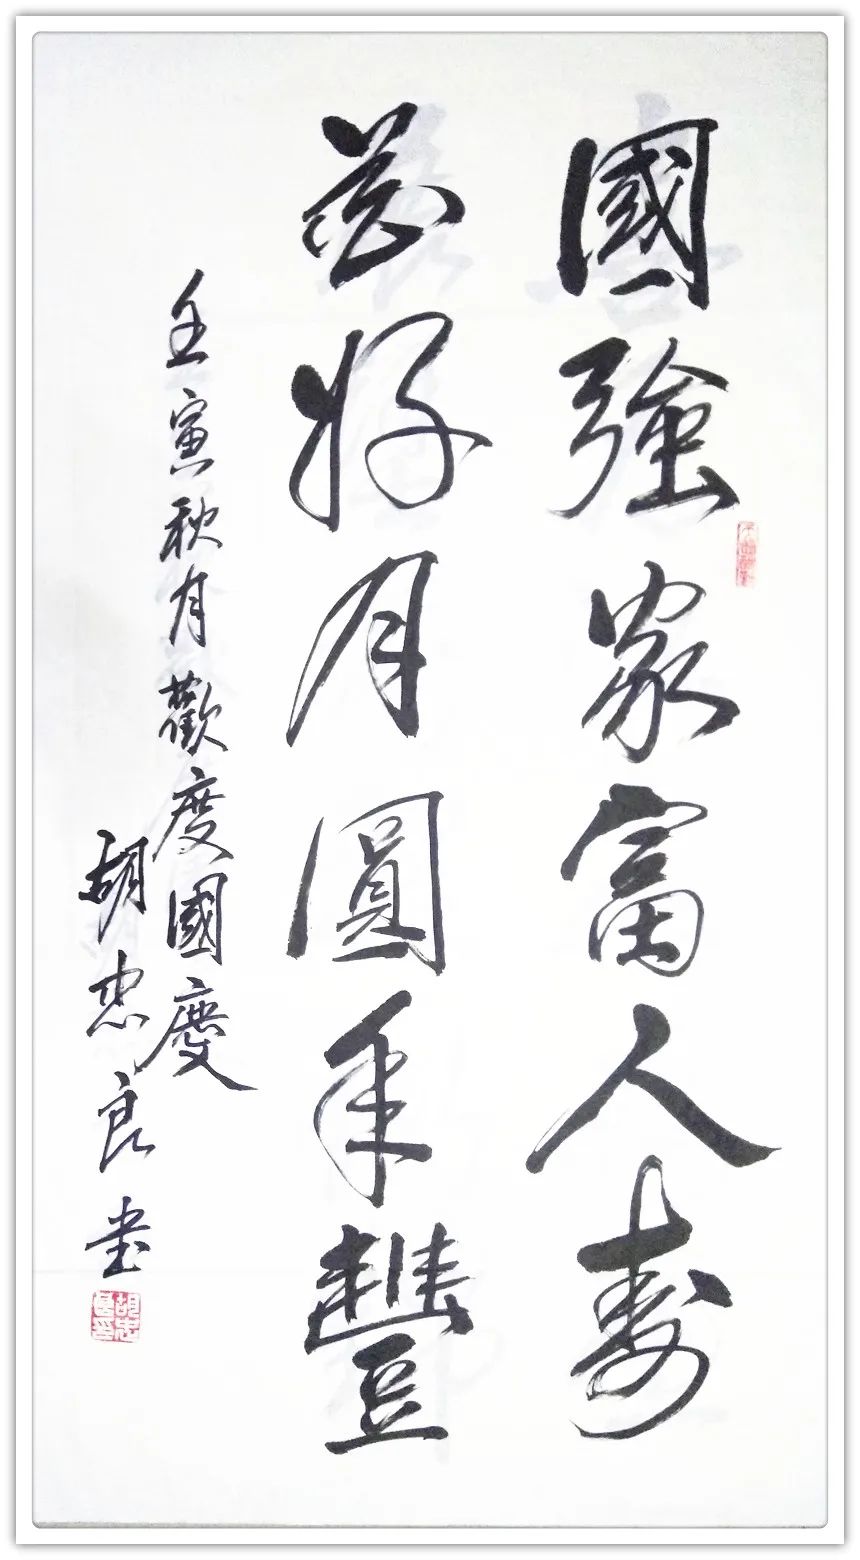 國強家富人壽
花好月圓年豐
壬寅秋月歡度國慶
胡忠良书
胡忠良印